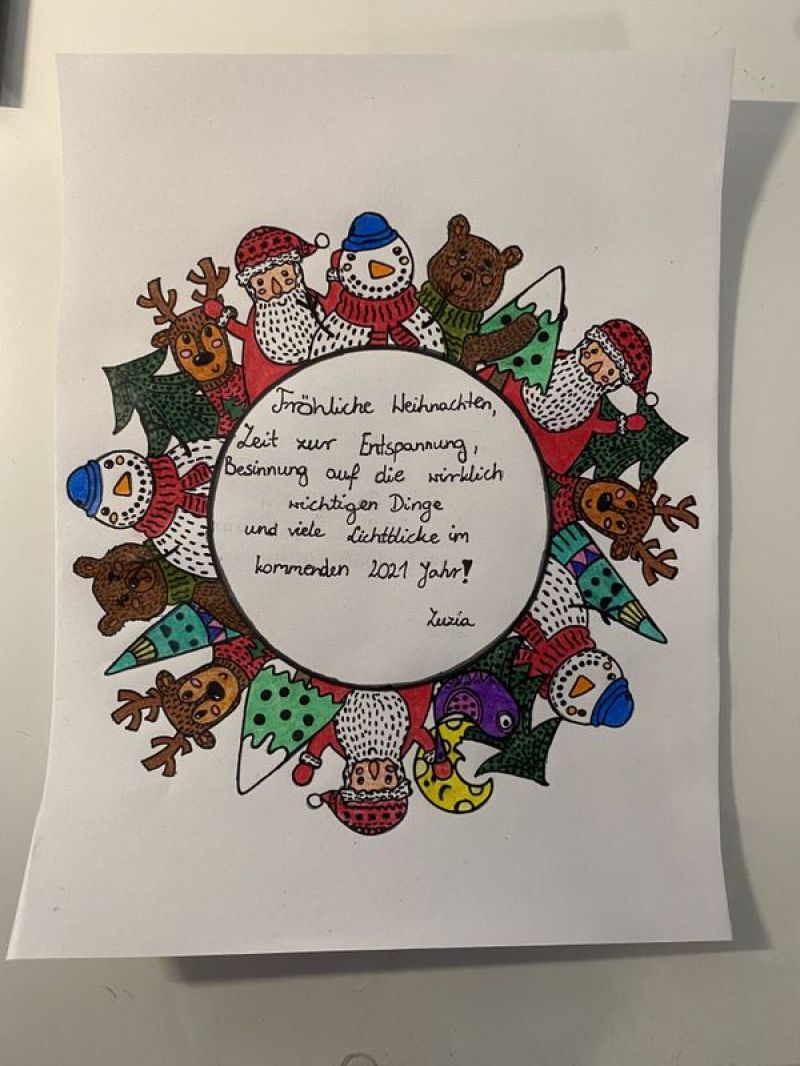 Fröhliche Weihnachten,
Zeit zur Entspannung,
Besinnung auf die wirklich
wichtigen Dinge
und viele Lichtblicke im
kommenden 2021 Jahr!
Zuzia